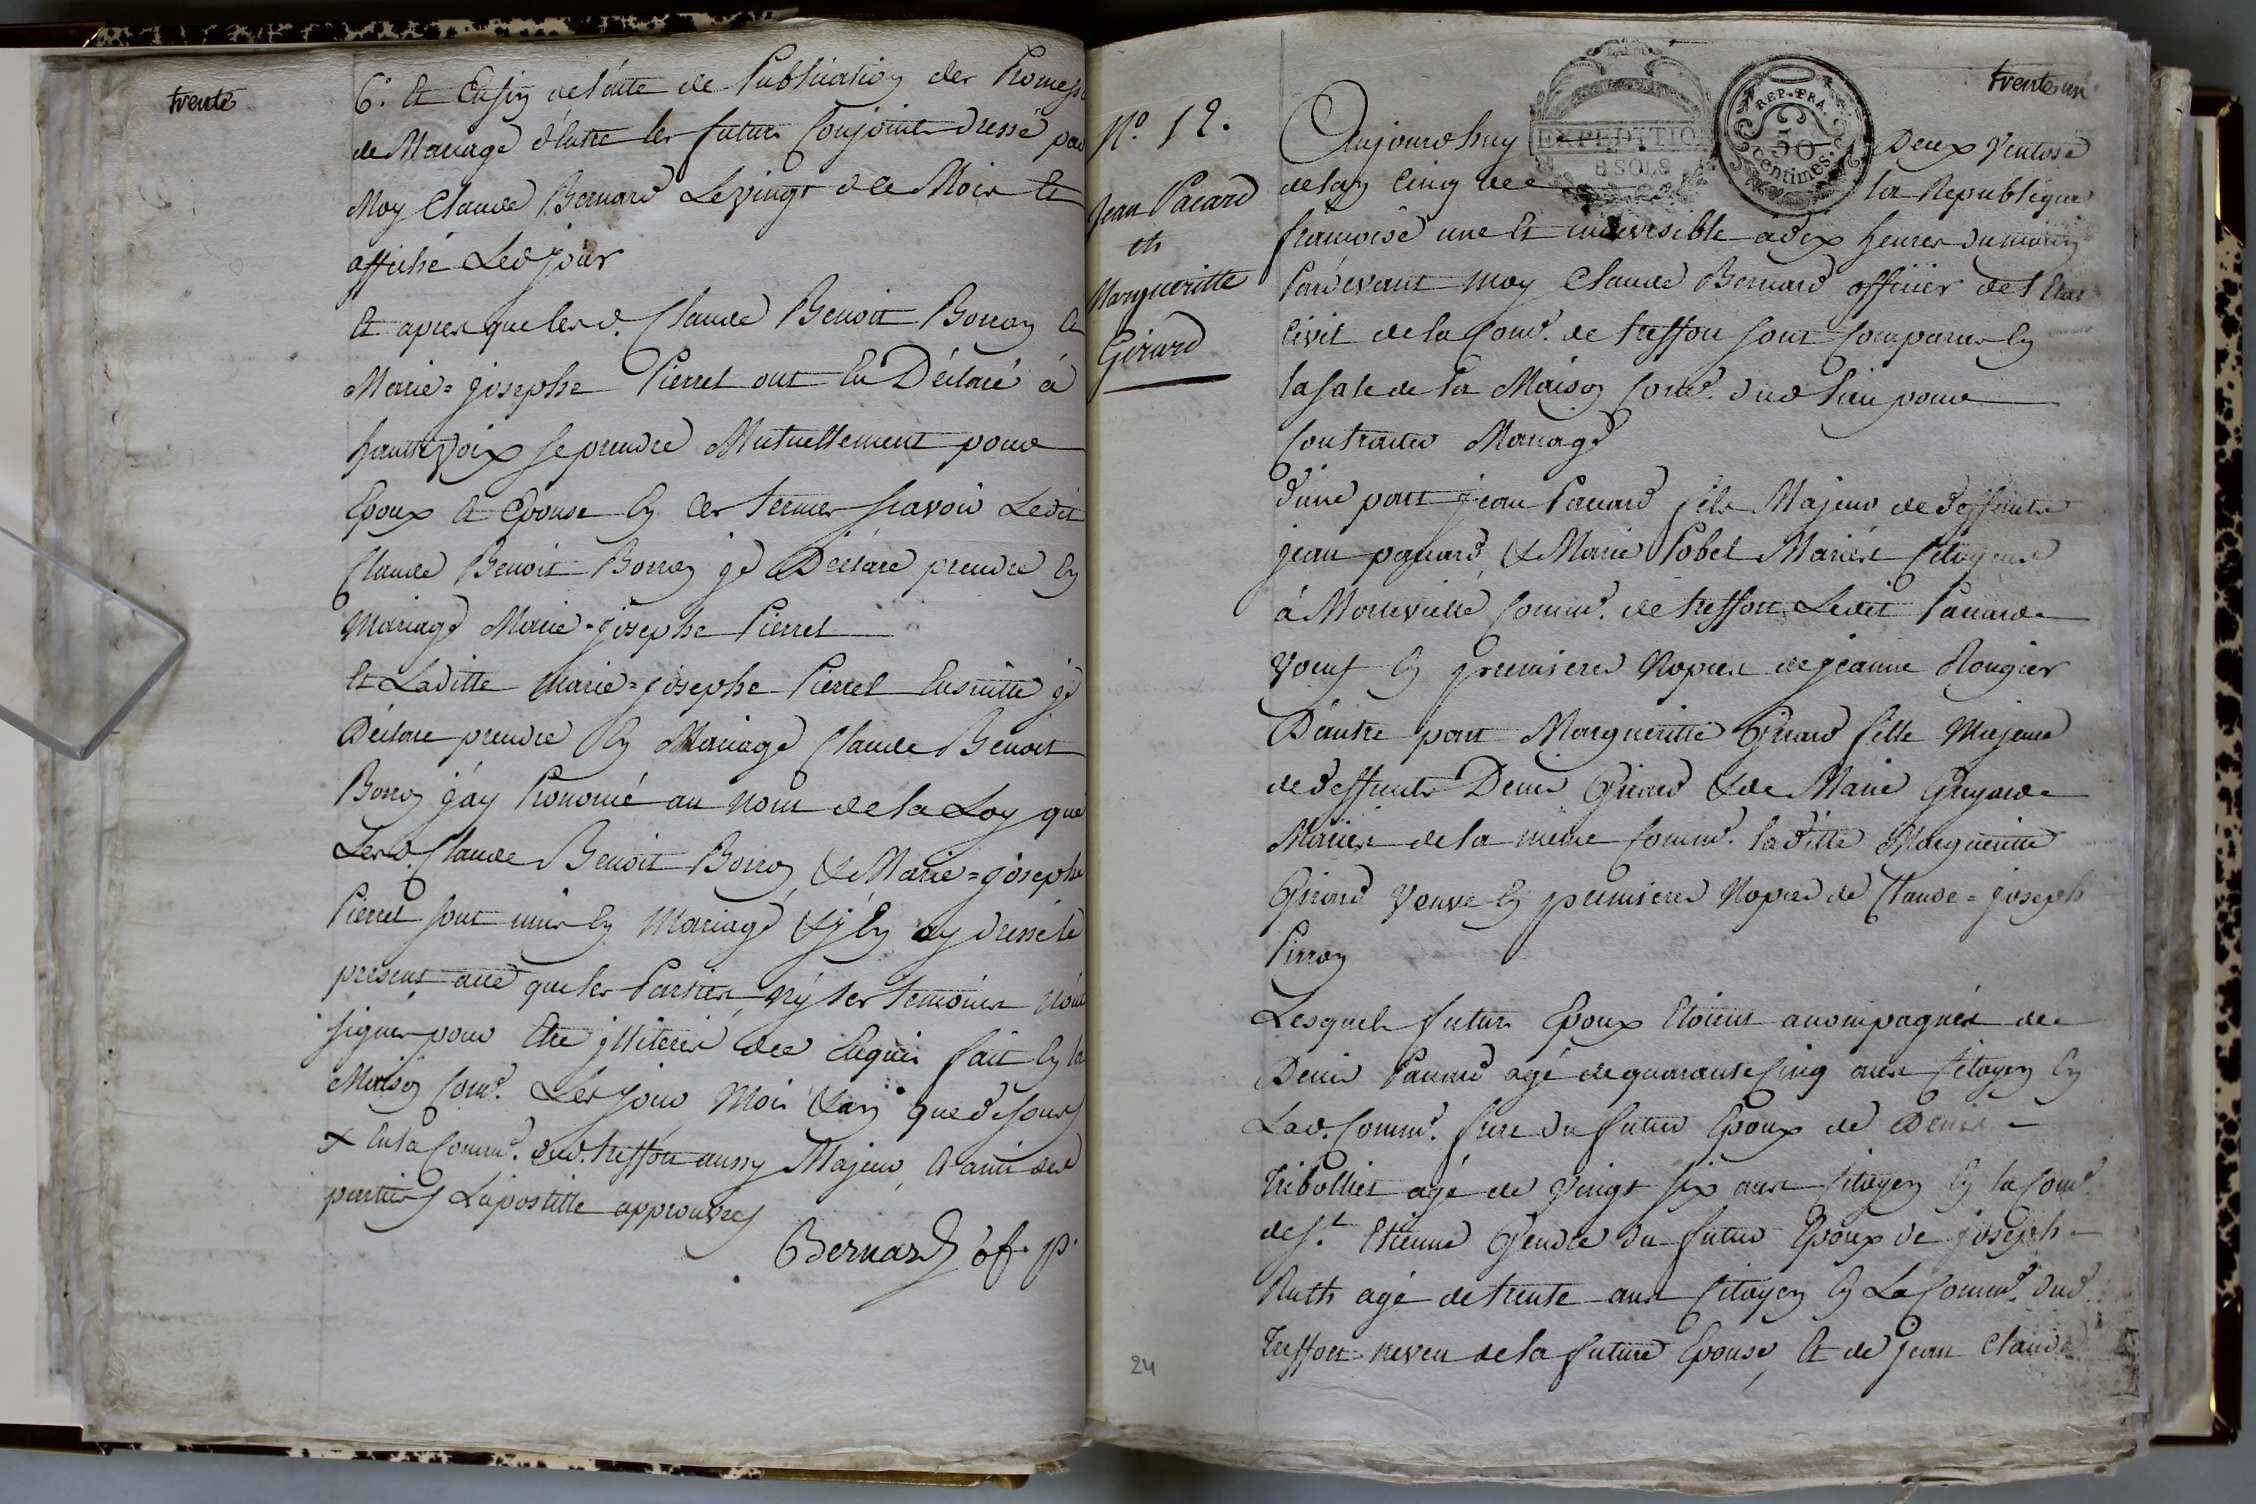 trente
6.° Et Enfin de l'acte de Publication des Promesse
de Mariage d'Entre les futurs Conjoints Dressé par
Moy Claude Bernard Le vingt dce Mois Et
affiché Led jour
Et apres que lesd. Claude Benoit Borron Et
Marie=josephe Pierrel ont Eu Déclaré à
haute voix se prendre Mutuellement pour
Epoux Et Epouse En Ces termes sçavoir Ledit
Claude Benoit Borron je Déclare prendre En
Mariage Marie=josephe Pierrel
Et Laditte Marie=josephe Pierrel Ensuitte je
Déclare prendre En Mariage Claude Benoit
Borron j'ay Prononcé au Nom de la Loy que
Lesd. Claude Benoit Borron & Marie=josephe
Pierrel sont unis En Mariage & j'En ay dressé le
présent acte que les Parties ny les temoins n'ont
signés pour Etre illiterés dce Enquis fait En la
Maison Com.e Les jour Mois & an que dessus
x En la Comm.e dud. treffort aussy Majeur, Et ami des
parties Lapostille approuvée
Bernard of. p.
trente un
N.° 12.
Jean Pacard
et
Margueritte
Girard
EXPEDITION
8 SOLS
REP. FRA.
50
centimes.
Aujourd'huy Deux Ventose
de lan Cinq de la Republique
françoise une Et indivisible a dix heures du matin
Pardevant moy Claude Bernard officier de l'Etat
Civil de la Com.e de treffort sont Comparus En
la sale de la Maison Com.e dud lieu pour
Contracter Mariage
d'une part jean Pacard fils Majeur de deffunts
jean pacard & Marie Pobel Mariés Citoyens
à Montevielle Comm.e de treffort Ledit Pacard
Veuf En premieres Noces de jeanne Rougier
D'autre part Margueritte Girard fille Majeure
de deffunts Denis Girard & de Marie Guyard
Mariés de la même Comm.e laditte Margueritte
Girard Veuve En premieres Noces de Claude=joseph
Pirron
Lesquels futurs Epoux Etoient accompagnés de
Denis Pacard agé de quarante Cinq ans Citoyen En
Lad. Comm.e frere du futur Epoux de Denis
Tribollet agé de vingt six ans Citoyen En la Com.e
de S.t Etienne Gendre du futur Epoux de joseph
Ruth agé de trente ans Citoyen En La Comm.e dud.
Treffort neveu de la future Epouse, Et de jean Claude
24